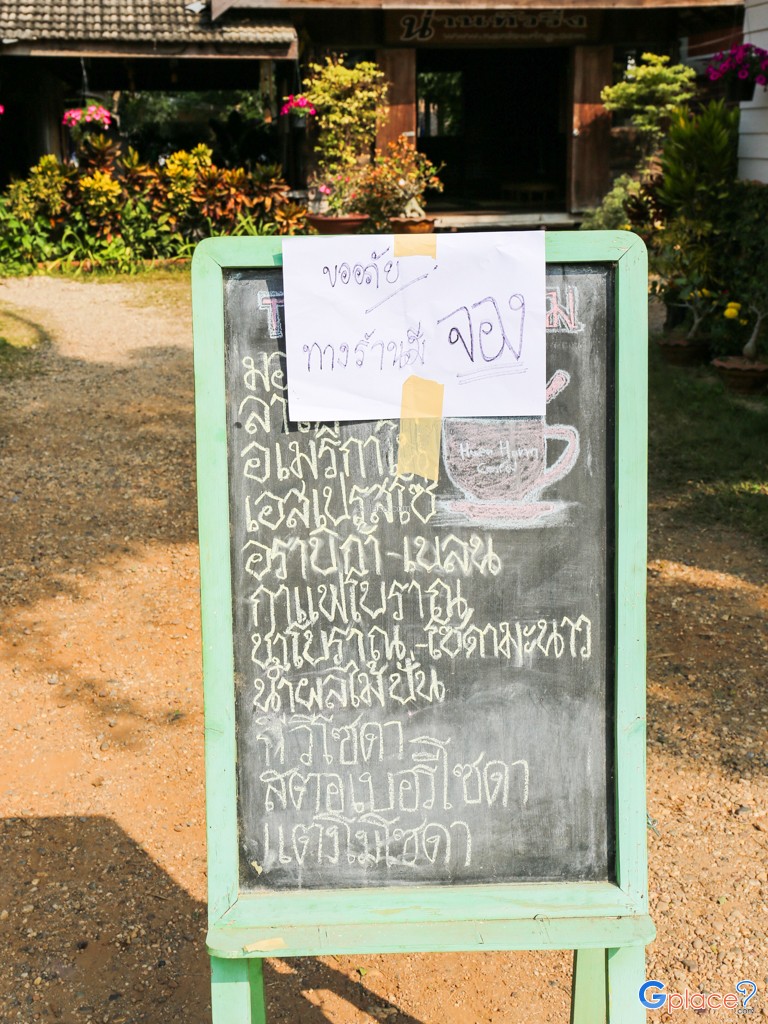 ขออภัย
ทางร้านมี จอง
อเมริกาโน
Huen Hum
เอสเปรสโซ
อราบิก้า-เบลน
กาแฟโบราณ
ชาโบราณ-โซดามะนาว
น้ำผลไม้ปั่น
กีวีโซดา
สตอเบอรี่โซดา
แตงโมโซดา
Gplace
.com